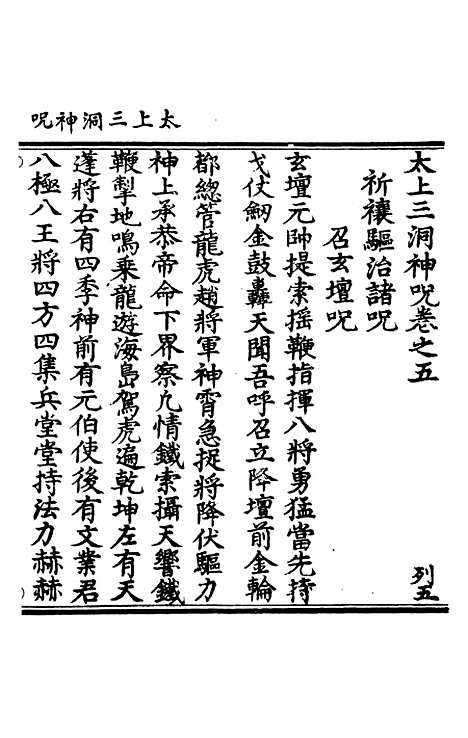 太上三洞神呪
太上三洞神呪卷之五
列五
祈禳驅治諸呪
召玄壇呪
玄壇元帥提索揺鞭指揮八將勇猛當先持
戈仗劒金鼓轟天聞吾呼召立降壇前金輪
都緫管龍虎趙將軍神霄急捉將降伏驅力
神上承恭帝命下界察凢情鐵索攝天響鐵
鞭掣地鳴乘龍遊海島駕虎遍乾坤左有天
蓬將右有四季神前有元伯使後有文業君
八極八王將四方四集兵堂堂持法力赫赫